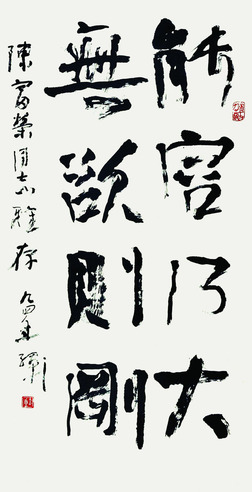 能容乃大
無欲則剛
陳富榮同志雅存